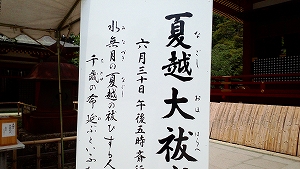 夏越大祓
なごし おほ はらへ
六月三十日午後五時斎行
水無月の夏越の祓ひする人
千歳の命延ぶといふ